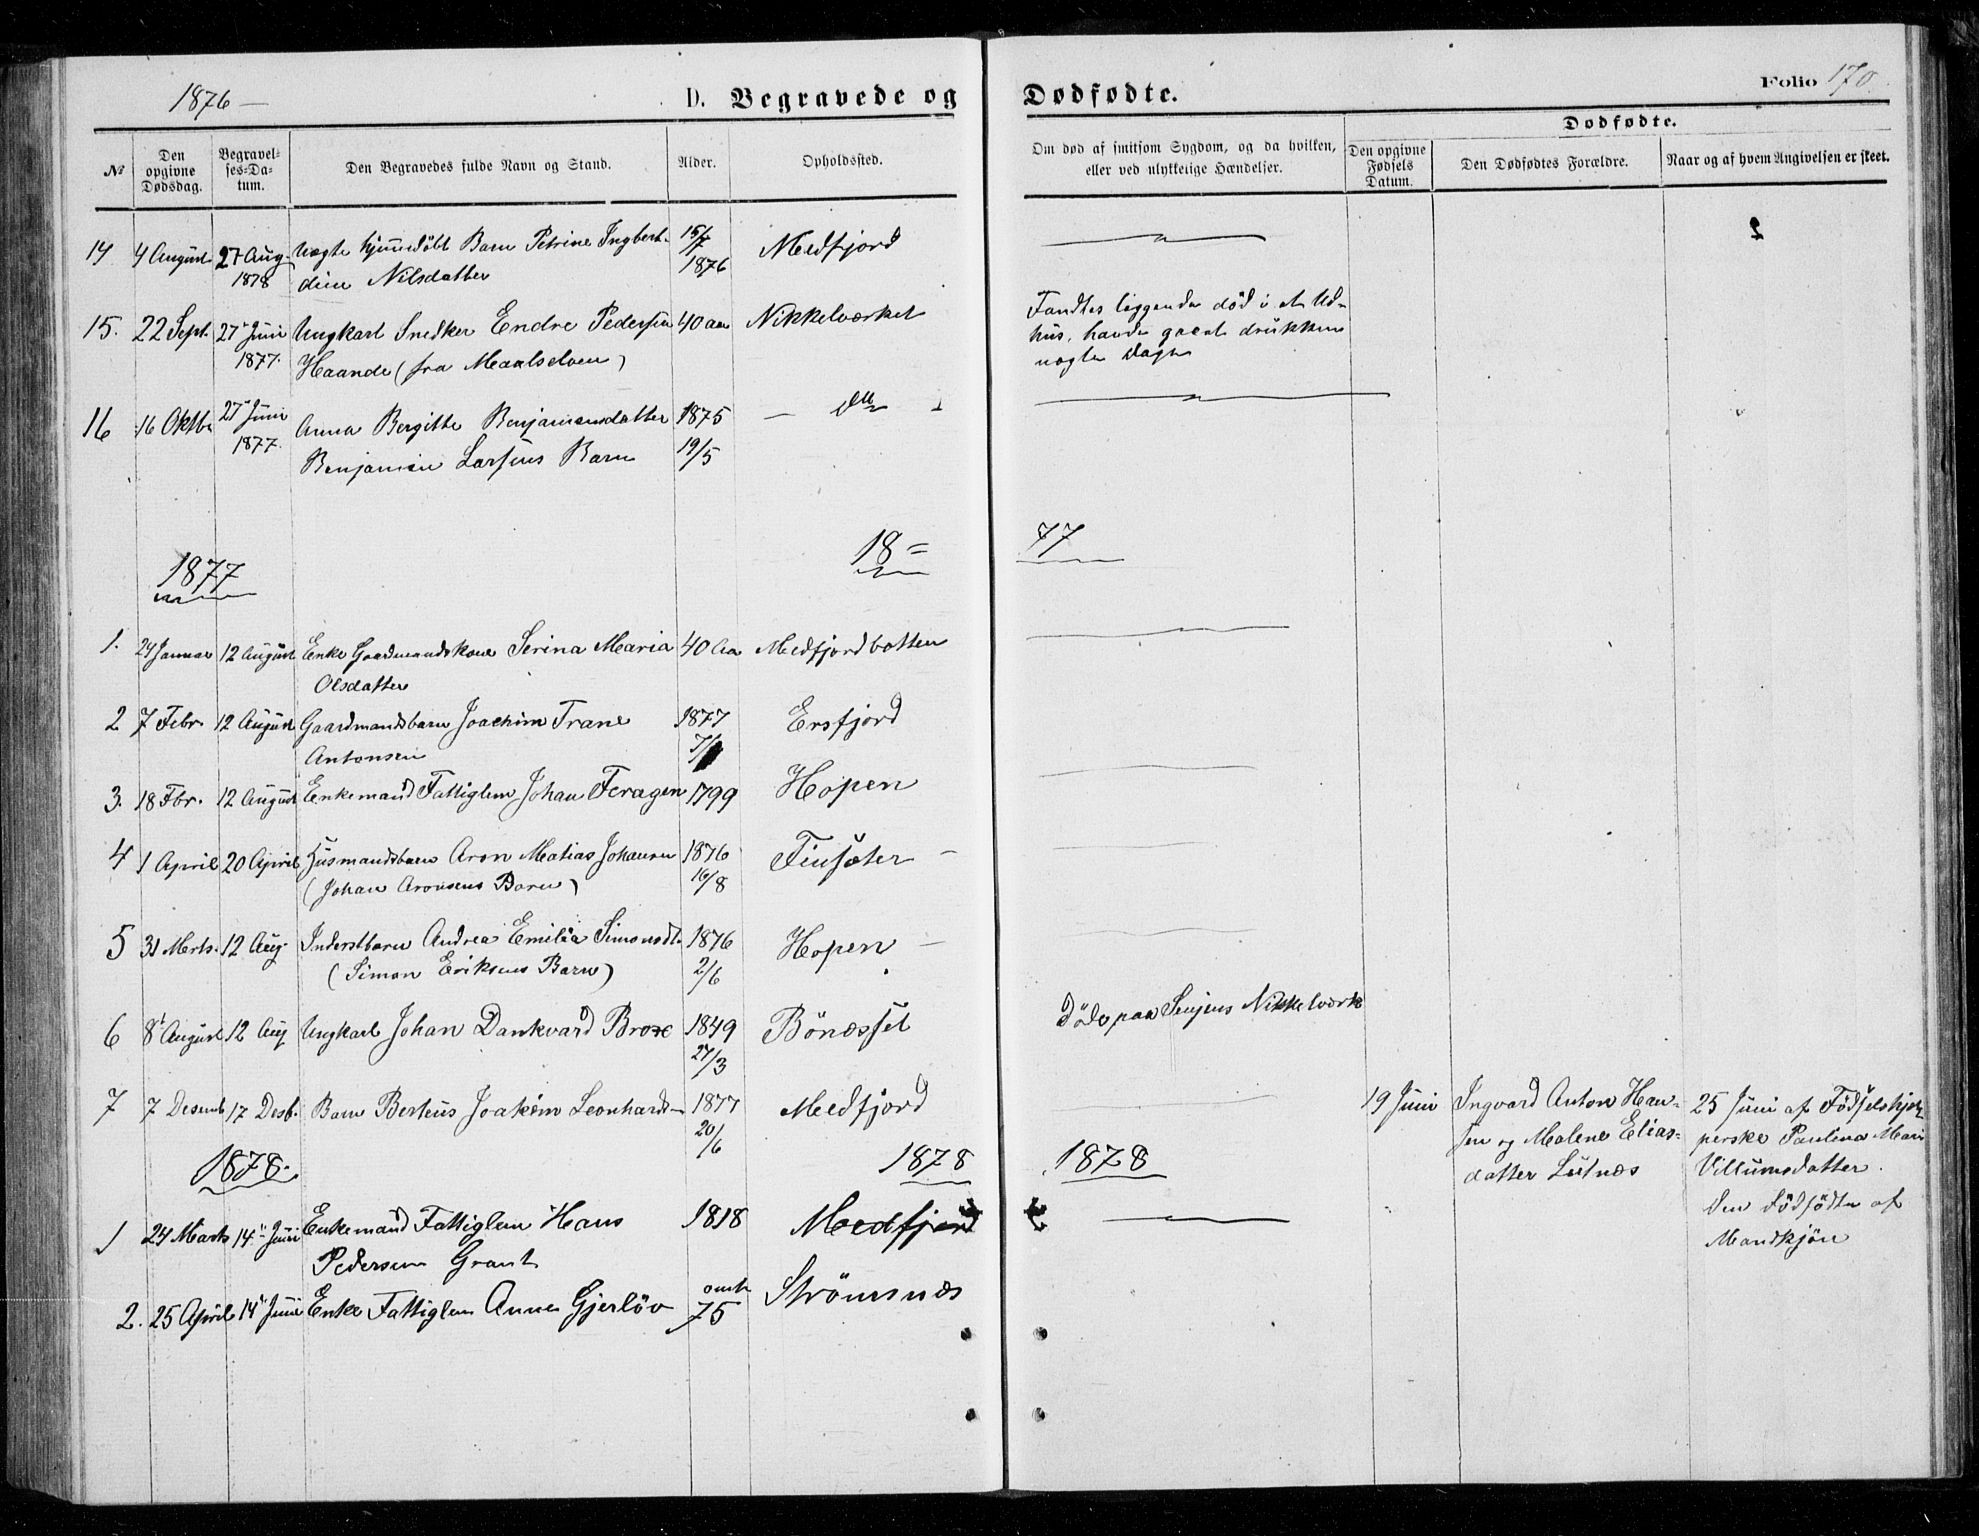 1876 –
D. Begravede og Dødfødte.
Folio 170.
№
Den opgivne Dødsdag.
Begravel-ses-Da-tum.
Den Begravedes fulde Navn og Stand.
Alder.
Opholdssted.
Om død af smitsom Sygdom, og da hvilken, eller ved ulykkelige Hændelser.
Dødfødte.
Den opgivne Fødsels Datum.
Den Dødfødtes Forældre.
Naar og af hvem Angivelsen er skeet.
14 4 August 27 Aug. Uægte hjemmedøbt Barn Petrine Ingbert- 15/7 Medfjord
1878 dine Nilsdatter 1876
2
15. 22 Sept. 27 Juni Ungkarl Snedker Endre Pedersen 40 aar Nikkelværket Fandtes liggende död i et Ud-
1877. Haande (fra Maalselven) hus, havde gaaet drukken
nogle Dage
16 16 Oktb. 27 Juni Anna Bergitte Benjaminsdatter 1875 – do –
1877. Benjamin Larsens Barn 19/5
18= 77
1877
1. 24 Januar 12 August Enke Gaardmandskone Serina Maria 40 Aar Medfjordbotten
Olsdatter
2 7 Febr. 12 August Gaardmandsbarn Joachim Trane 1877 Ersfjord
Antonsen 7/1
3. 18 Fbr. 12 August Enkemand Fattiglem Johan Feragen 1799 Hopen
4 1 April 20 April Husmandsbarn Aron Matias Johansen 1876 Finsæter –
(Johan Aronsens Barn) 16/8
5 31 Marts. 12 Aug. Inderstbarn Andrea Emilia Simonsdt. 1876 Hopen –
(Simon Eriksens Barn) 2/6
6 8 August 12 Aug Ungkarl Johan Dankvard Broxe 1849 Bönæsset Döde paa Senjens Nikkelværk
27/3
7 7 Desemb 17 Desb. Barn Berteus Joakim Leonhards– 1877 Medfjord 19 Juni Ingvard Anton Han- 25 Juni af Födselshjel-
20/6 sen og Malene Elias= perske Paulina Mari
1878. 1878 1878 datter Lutnæs Villumsdatter.
Den Födfödte af
Mandkjön
1 24 Marts 14 Juni Enkemand Fattiglem Hans 1818 Medfjord
Pedersen Grant
2. 25 April 14 Juni Enke Fattiglem Anne Gjerløv omtr 75 Strömsnæs